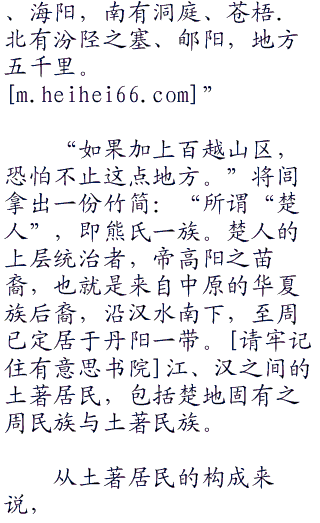 、海阳，南有洞庭、苍梧.
北有汾陉之塞、郇阳，地方
五千里。
[m.heihei66.com]”
“如果加上百越山区，
恐怕不止这点地方。”将闾
拿出一份竹简：“所谓“楚
人”，即熊氏一族。楚人的
上层统治者，帝高阳之苗
裔，也就是来自中原的华夏
族后裔，沿汉水南下，至周
已定居于丹阳一带。[请牢记
住有意思书院]江、汉之间的
土著居民，包括楚地固有之
周民族与土著民族。
从土著居民的构成来
说，